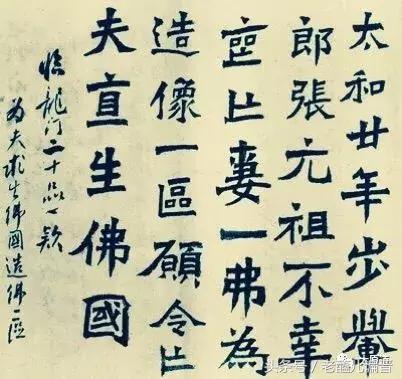 太和廿年步轝
郎張元祖不幸
喪亡妻一弗為
造像一區願令亡
夫直生佛國
临龍门二十品 款
为夫求生佛國造佛一區
头条号 /